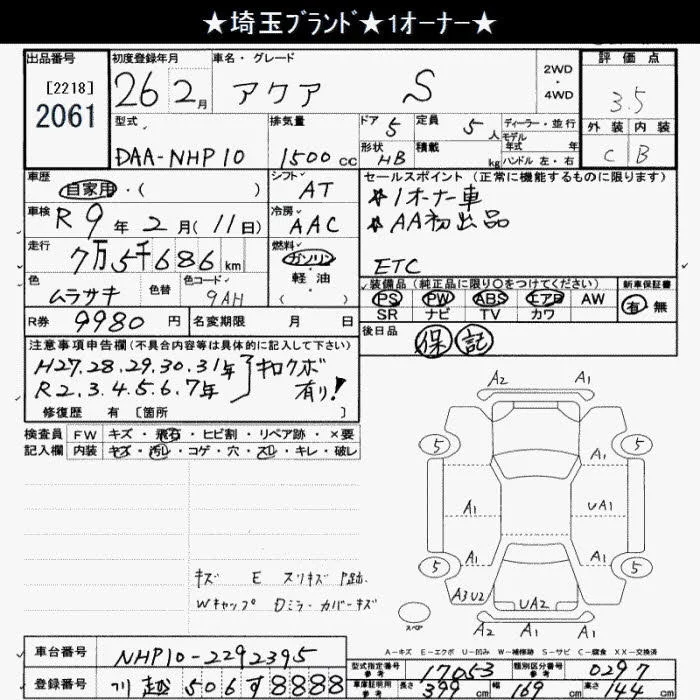 ★埼玉ブランド★1オーナー★
出品番号 初度登録年月 車名・グレード 評価点
[2218]
2061
26 2月 アクア S 2WD・4WD 3.5
型式 排気量 ドア 5 定員 5人 ディーラー・並行 外装 内装
モデル年式 年
DAA-NHP10 1500cc 形状 HB 積載 kg ハンドル 左・右 C B
車歴 自家用・( ) シフト AT セールスポイント(正常に機能するものに限ります)
★1オーナー車
★AA初出品
車検 R9年2月(11日) 冷房 AAC
走行 7万5千686km 燃料 ガソリン・軽油・( ) ETC
色 ムラサキ 色替 色コード 9AH
装備品(純正品に限り○をつけてください) 新車保証書
PS PW ABS エアB AW 有 無
SR ナビ TV カワ
R券 9980円 名変期限 月 日 後日品 保 記
注意事項申告欄(不具合内容等は具体的に記入して下さい)
H27,28,29,30,31年
R2,3,4,5,6,7年
キロクボ有り!
修復歴 有[箇所 ]
検査員 FW キズ・飛石・ヒビ割・リペア跡・×要
記入欄 内装 キズ・汚レ・コゲ・穴・スレ・キレ・破レ
A2 A1
5 5
A1
A1 UA1
A1 A1
5 5
A3U2 UA2 A1
スペア A2 A1 A1
キズ E スリキズ
Wキャップ Dミラーカバーキズ
A-キズ E-エクボ U-凹み W-補修跡 S-サビ C-腐食 XX-交換済
車台番号 NHP10-2292395
型式指定番号 参考 17053 類別区分番号 参考 0297
登録番号 川越 506 す 8888
車庫証明用 参考 長さ 399cm 幅 169cm 高さ 144cm